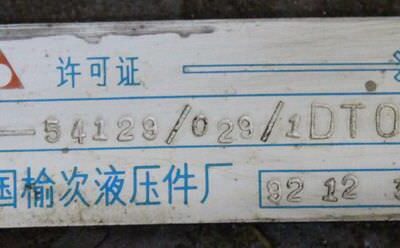 许可证
—54129/029/1DT0
国榆次液压件厂 92 12 3